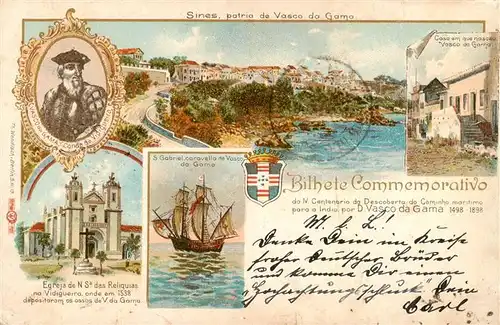 Sines, patria de Vasco da Gama.
Casa em que nasceu
Vasco da Gama
S. Gabriel, caravella de Vasco
da Gama
Bilhete Commemorativo
do IV. Centenario da Descoberta do Caminho maritimo
para a India, por D. VASCO da GAMA 1498-1898
Egreja de N. Sª das Reliquias
na Vidigueira, onde em 1538
depositaram os ossos de V. da Gama.
M. l. L!
Denke Dein im Kreise
froher Deutscher Brüder
und komme Dir einen
"Hochachtungsschluck" Dein
Carl